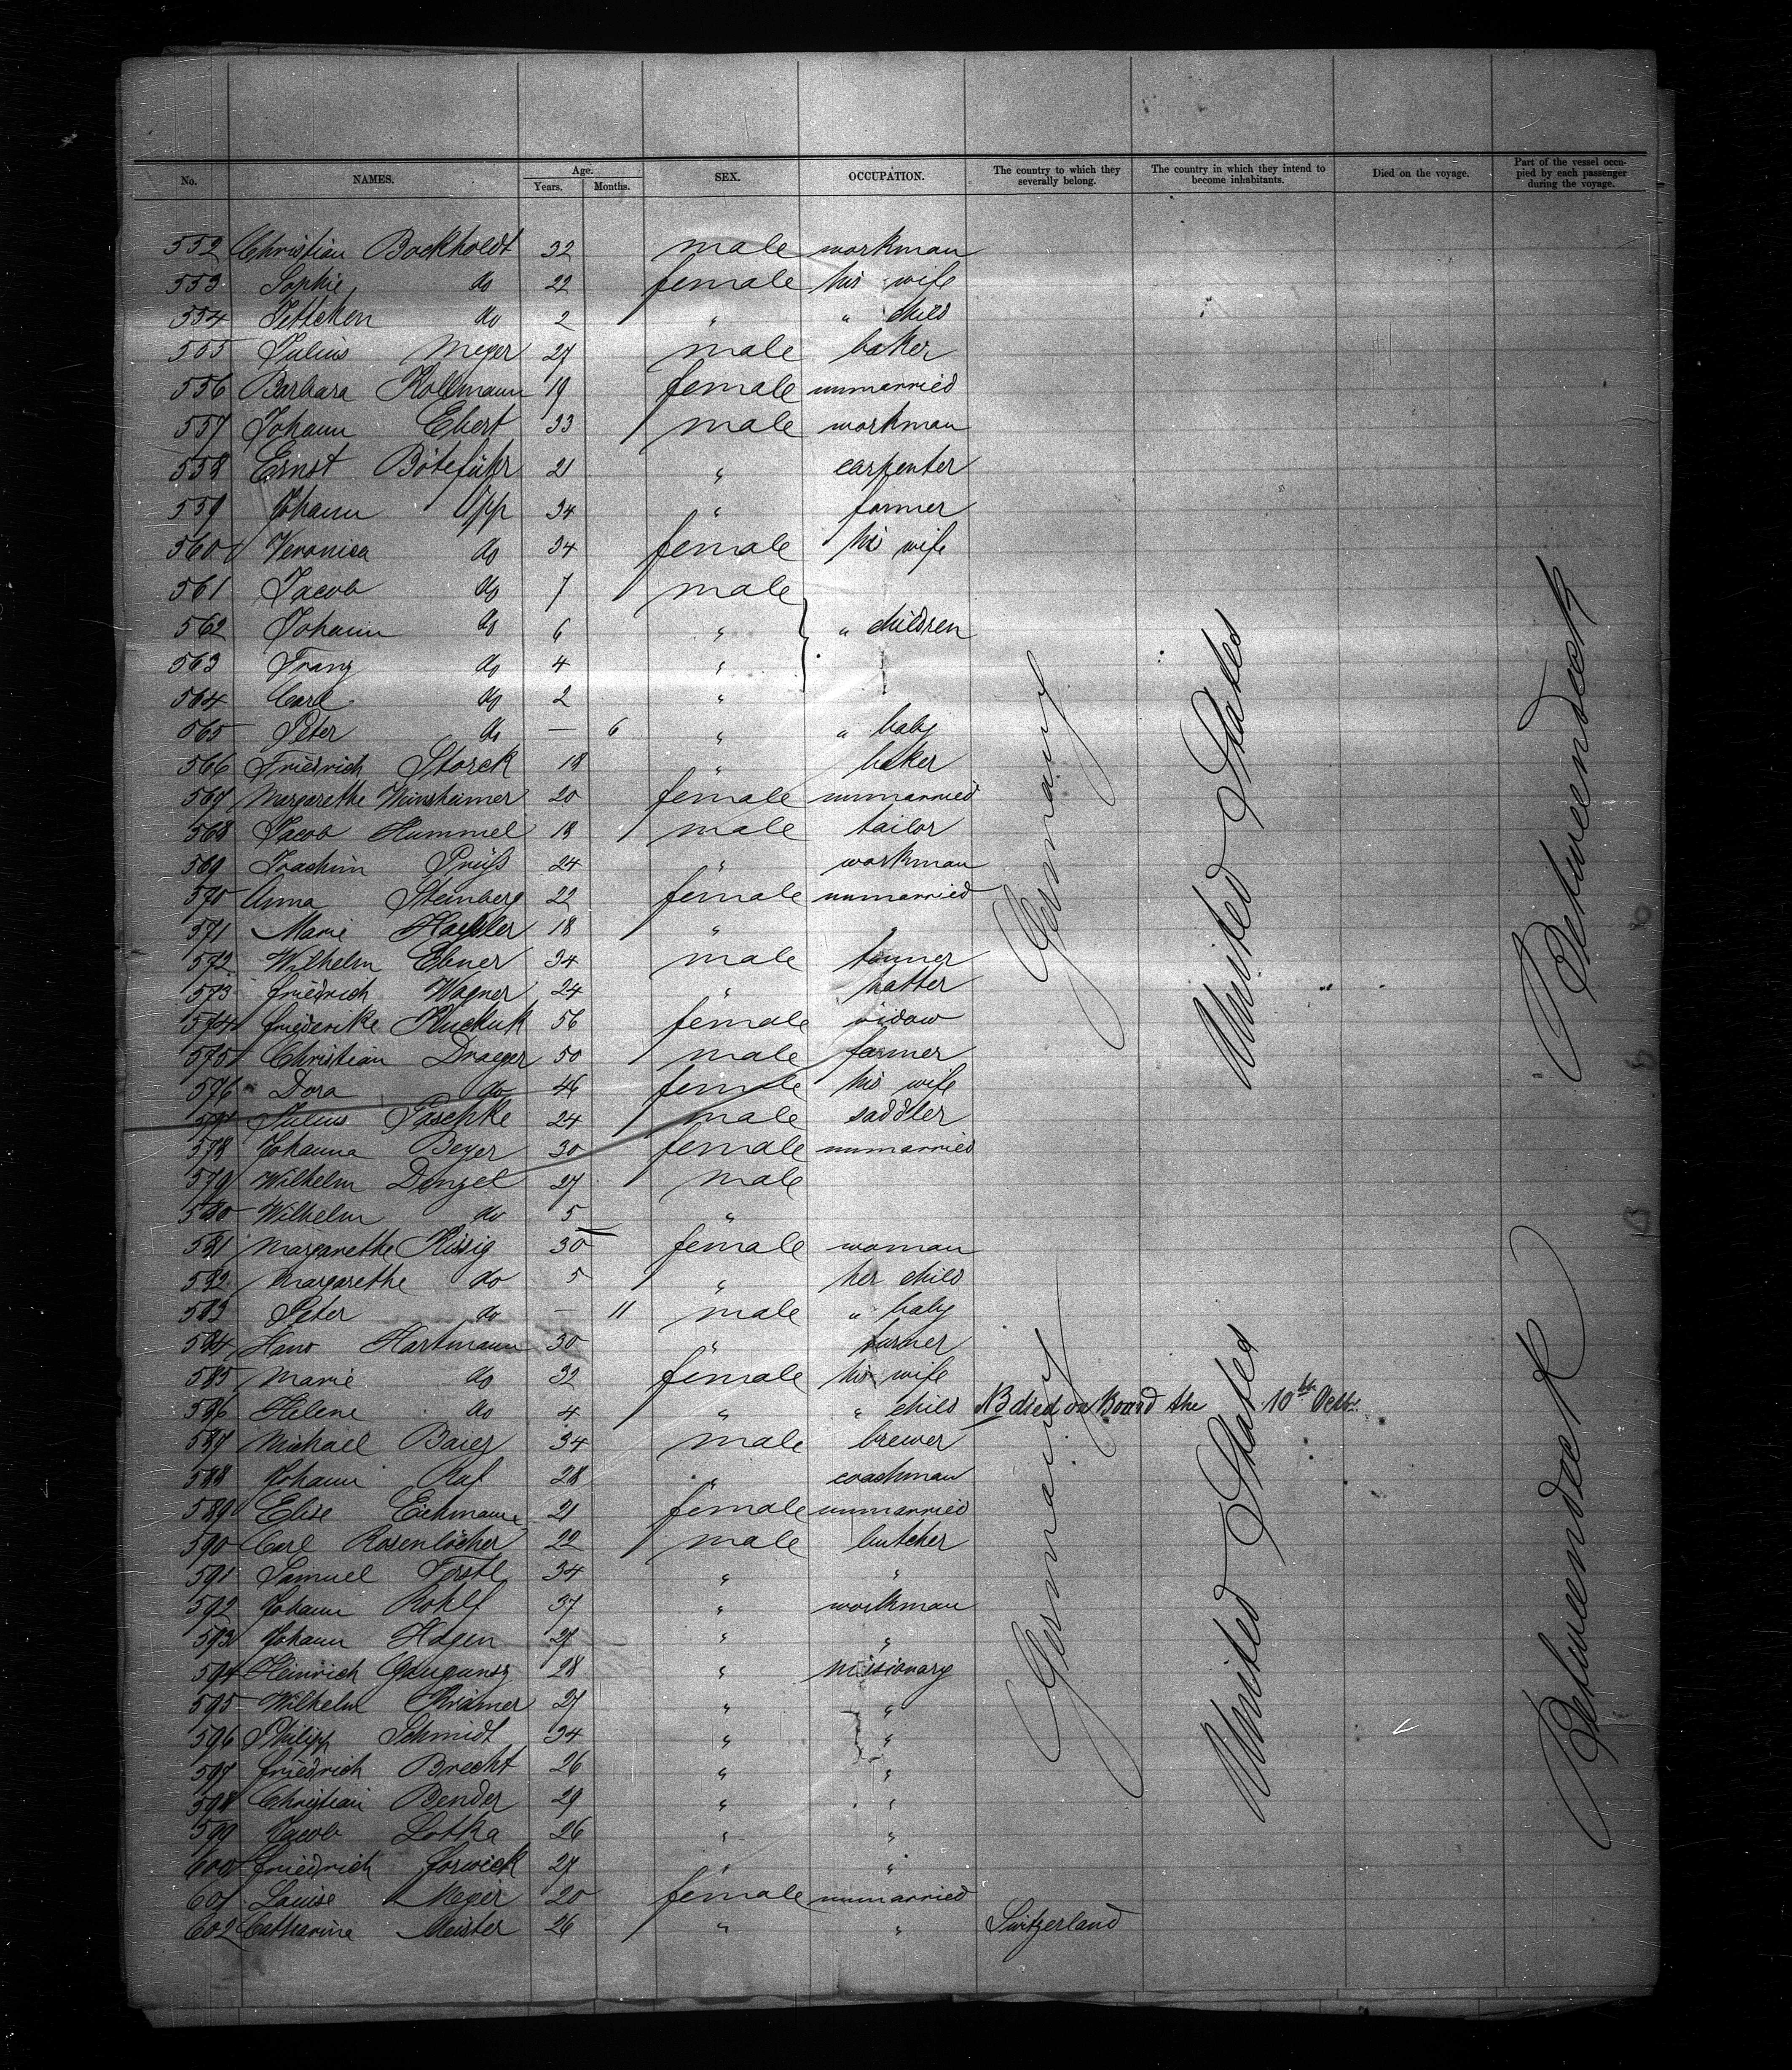 No. NAMES. Age. Years. Months. SEX. OCCUPATION. The country to which they severally belong. The country in which they intend to become inhabitants. Died on the voyage. Part of the vessel occu-pied by each passenger during the voyage.
552 Christian Bockholdt 32 male workman
553 Sophie do 22 female his wife
554 Jettchen do 2 " " child
555 Julius Meyer 27 male baker
556 Barbara Kollmann 19 female unmarried
557 Johann Ebert 33 male workman
558 Ernst Böteführ 21 " carpenter
559 Johann Opp 34 " farmer
560 Veronica do 34 female his wife
561 Jacob do 7 male
562 Johann do 6 " " children
563 Franz do 4 "
564 Carl do 2 "
565 Peter do — 6 " " baby
566 Friedrich Storck 18 " baker
567 Margarethe 20 female unmarried
568 Jacob Hummel 18 male tailor
569 Joachim Prüß 24 " workman
570 Anna Steinberg 22 female unmarried
571 Marie 18 " "
572 Wilhelm Ebner 34 male
573 Friedrich Wagner 24 " hatter
574 Friederike Kuckuk 56 female widow
575 Christian Draeger 50 male farmer
576 Dora do 46 female his wife
577 Julius Paschke 24 male saddler
578 Johanna Beyer 30 female unmarried
579 Wilhelm Denzel 27 male
580 Wilhelm do 5 "
581 Margarethe Kissig 30 female woman
582 Margarethe do 5 " her child
583 Peter do — 11 male " baby
584 Hans Hartmann 30 "
585 Marie do 32 female his wife
586 Helene do 4 " " child NB died on Board the 10th Octb.
587 Michael Baier 34 male brewer
588 Johann Ruf 28 " coachman
589 Elise Eichmann 21 female unmarried
590 Carl Rosenlöcher 22 male butcher
591 Samuel Forstl 34 " "
592 Johann Rohlf 37 " workman
593 Johann Hagen 27 " "
594 Heinrich 28 " missionary
595 Wilhelm Krämer 27 " "
596 Philipp Schmidt 34 " "
597 Friedrich Brecht 26 " "
598 Christian Bender 29 " "
599 Jacob Lotka 26 " "
600 Friedrich Forwick 27 " "
601 Louise Meyer 20 female unmarried
602 Catharina Meister 26 " " Switzerland
Germany
United States
Betweendeck
Germany
United States
Betweendeck